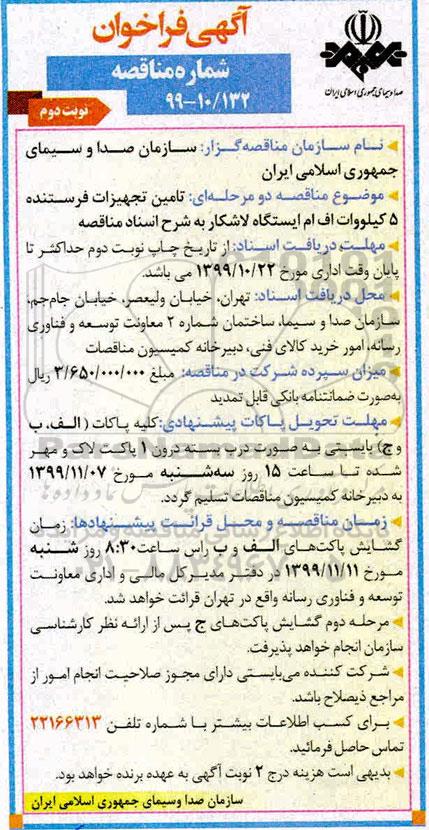 آگهی فراخوان
شماره مناقصه
۹۹-۱۰/۱۳۲
نوبت دوم
صدا و سیمای جمهوری اسلامی ایران
نـام سـازمان مناقصه‌گـزار: سـازمان صـدا و سـیمای
جمهوری اسلامی ایران
موضـوع مناقصـه دو مرحله‌ای: تامین تجهیزات فرستنده
۵ کیلووات اف ام ایستگاه لاشکار به شرح اسناد مناقصه
مهلت دریافت اسـناد: از تاریخ چاپ نوبت دوم حداکثر تا
پایان وقت اداری مورخ ۱۳۹۹/۱۰/۲۲ می باشد.
محل دریافت اسـناد: تهران، خیابـان ولیعصر، خیابان جام‌جم،
سازمان صدا و سیما، ساختمان شـماره ۲ معاونت توسعه و فناوری
رسانه، امور خرید کالای فنی، دبیرخانه کمیسیون مناقصات
میزان سـپرده شـرکت در مناقصه: مبلغ ۳/۶۵۰/۰۰۰/۰۰۰ ریال
به‌صورت ضمانتنامه بانکی قابل تمدید
مهلـت تحویـل پـاکات پیشـنهادی: کلیه پـاکات ( الـف، ب
و ج) بایسـتی به صورت درب بسـته درون ۱ پاکت لاک و مهر
شده تـا سـاعت ۱۵ روز سه‌شـنبه مـورخ ۱۳۹۹/۱۱/۰۷
به دبیرخانه کمیسیون مناقصات تسلیم گردد.
زمـان مناقصـه و محـل قرائـت پیشـنهادها: زمان
گشایش پاکت‌های الـف و ب راس ساعت ۸:۳۰ روز شـنبه
مورخ ۱۳۹۹/۱۱/۱۱ در دفتر مدیرکل مالـی و اداری معاونت
توسعه و فناوری رسانه واقع در تهران قرائت خواهد شد.
مرحلـه دوم گشـایش پاکت‌های ج پس از ارائـه نظر کارشناسی
سازمان انجام خواهد پذیرفت.
شـرکت کننده می‌بایستی دارای مجوز صلاحیت انجام امور از
مراجع ذیصلاح باشد.
بـرای کسـب اطلاعـات بیشـتر بـا شـماره تلفـن ۲۲۱۶۶۳۱۳
تماس حاصل فرمائید.
بدیهی است هزینه درج ۲ نوبت آگهی به عهده برنده خواهد بود.
سازمان صدا وسیمای جمهوری اسلامی ایران